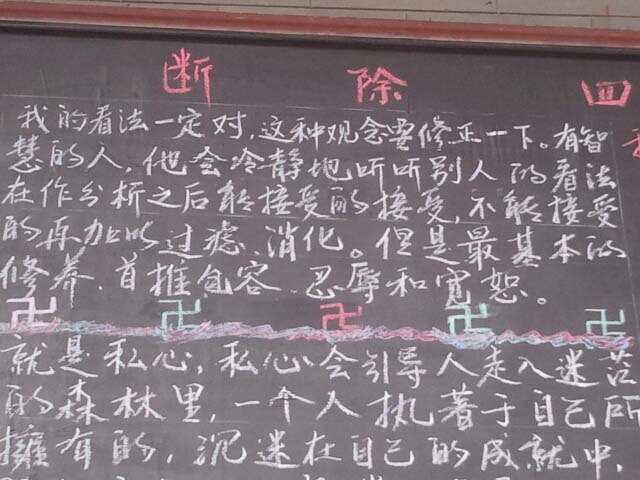 断除四
我的看法一定对,这种观念要修正一下。有智
慧的人,他会冷静地听听别人的看法
在作分析之后能接受的接受,不能接受
的再加以过滤、消化。但是最基本的
修养、首推包容、忍辱和宽恕。
卍 卍 卍 卍 卍
就是私心,私心会引导人走入迷茫
的森林里,一个人执著于自己所
擁有的,沉迷在自己的成就中,